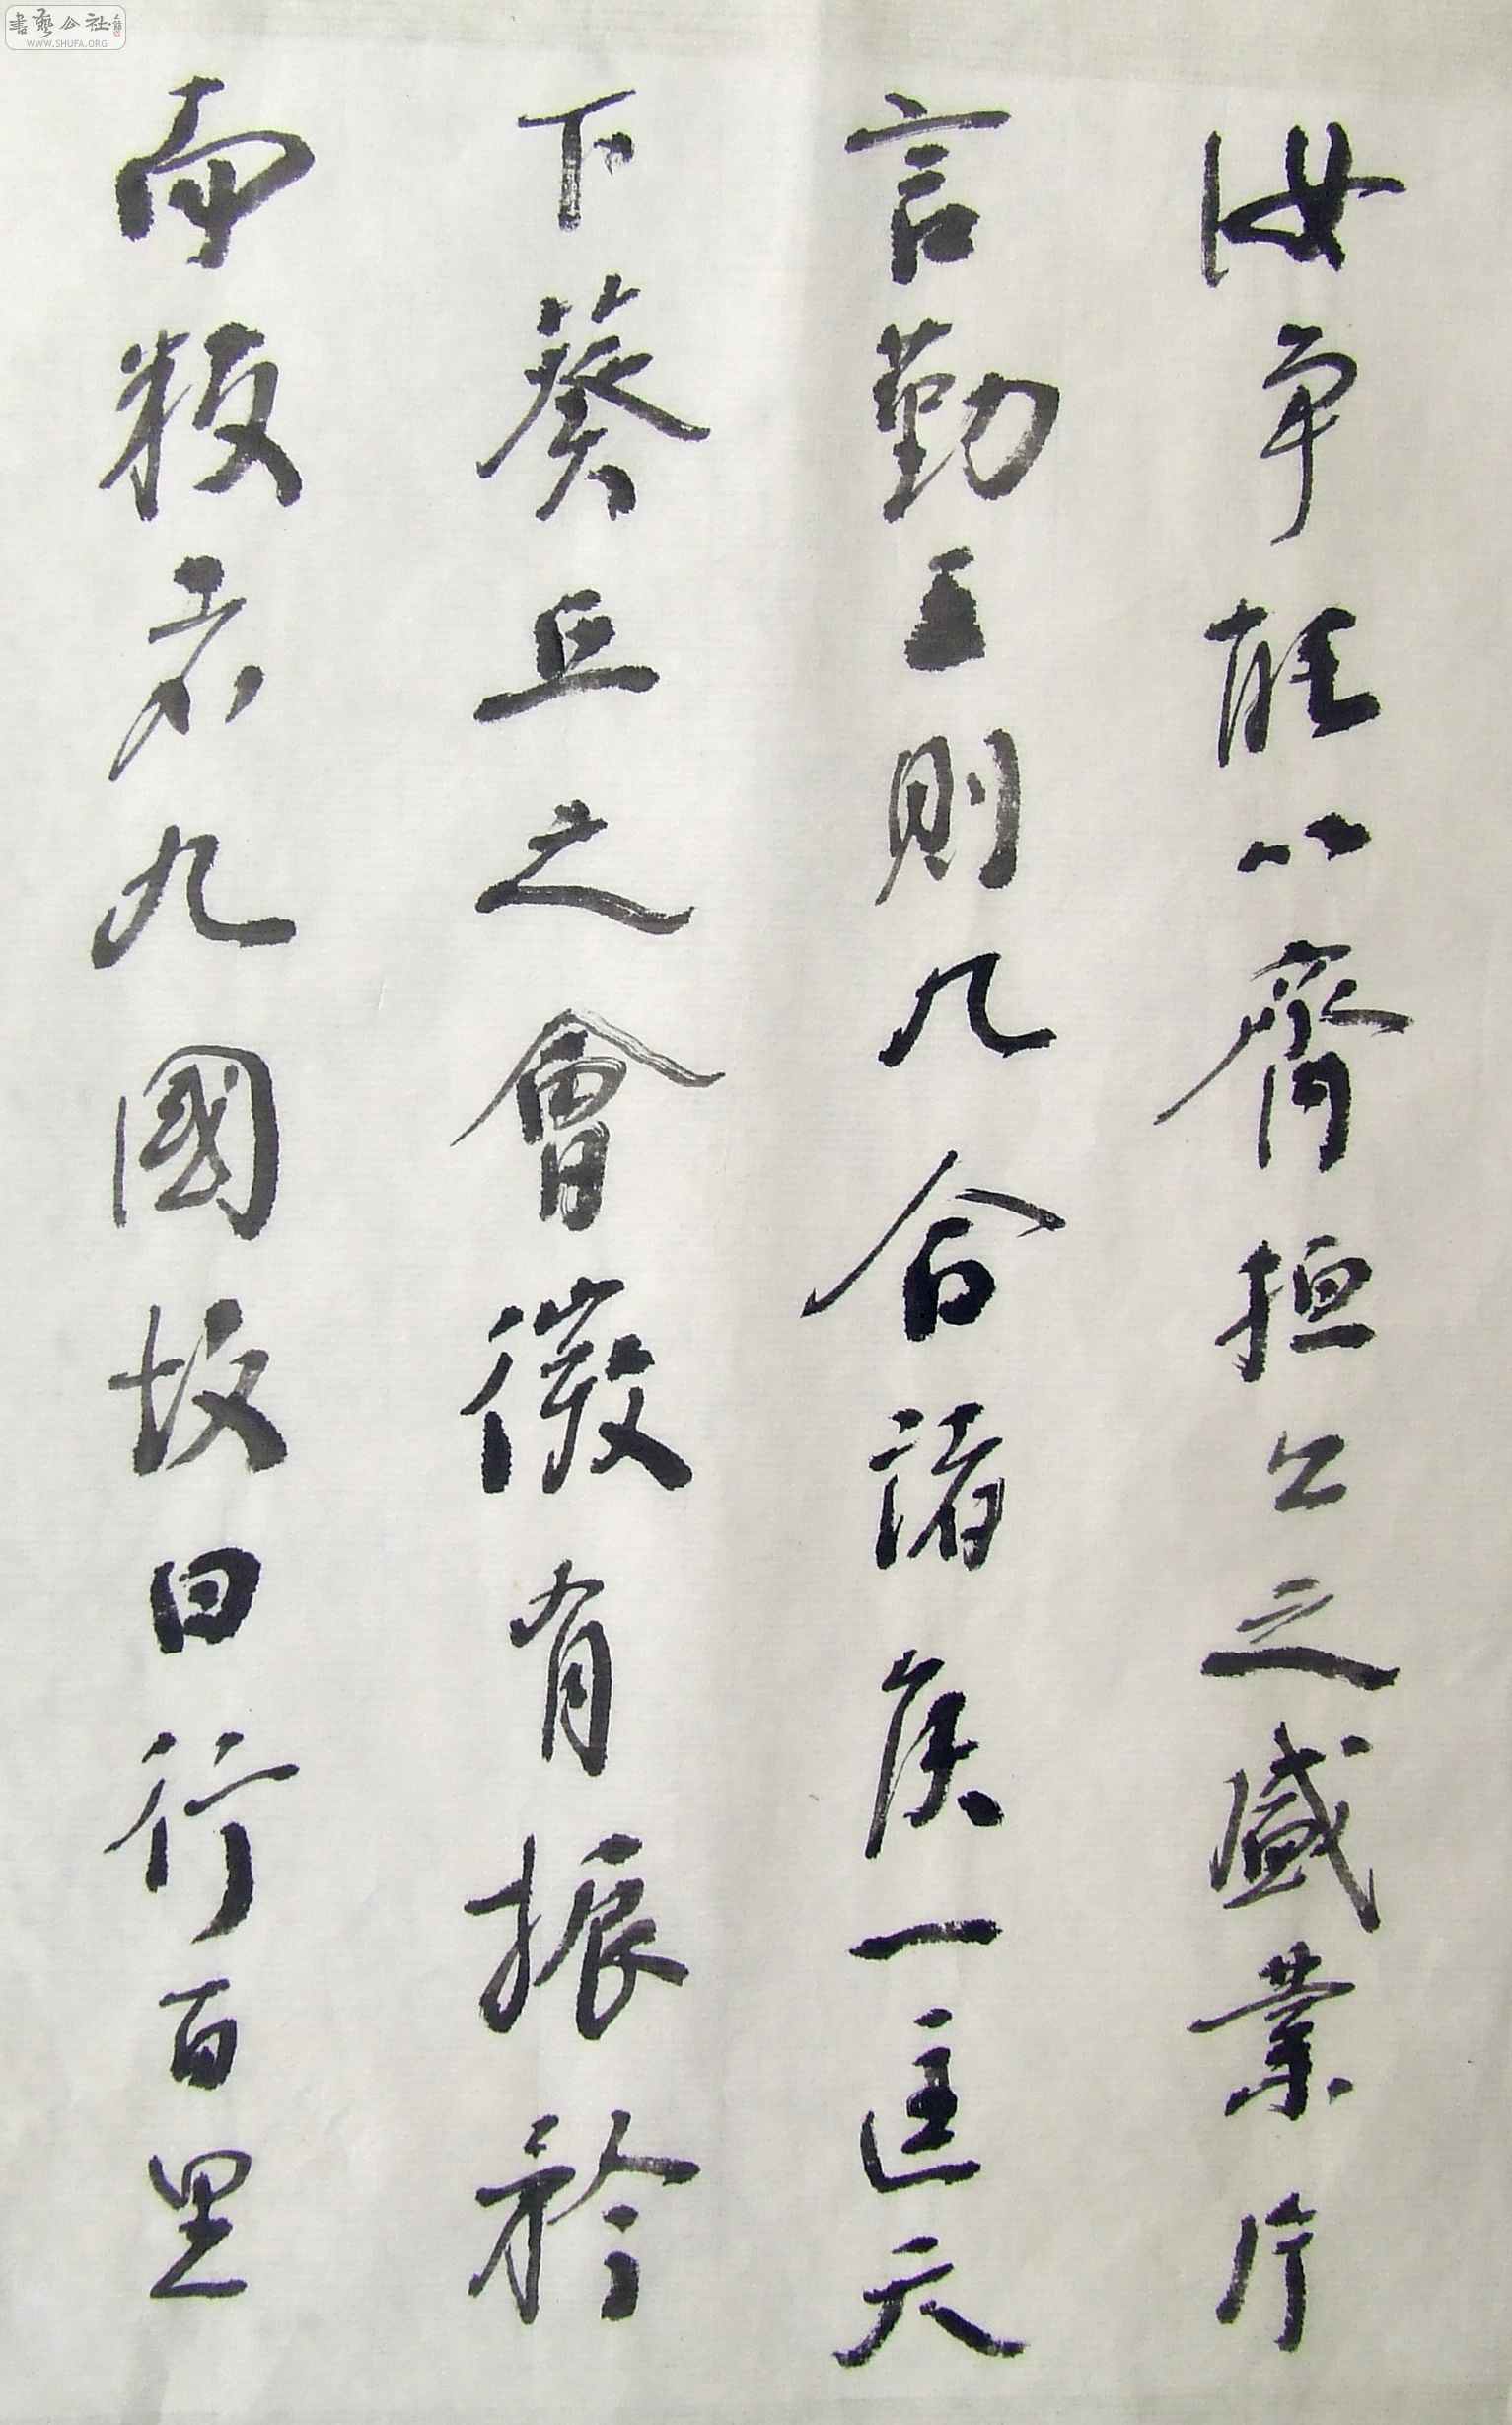 汝争能以齊桓公之盛業片
言勤王則九合諸侯一匡天
下葵丘之會微有振矜
而叛者九國故曰行百里
書藝公社
WWW.SHUFA.ORG